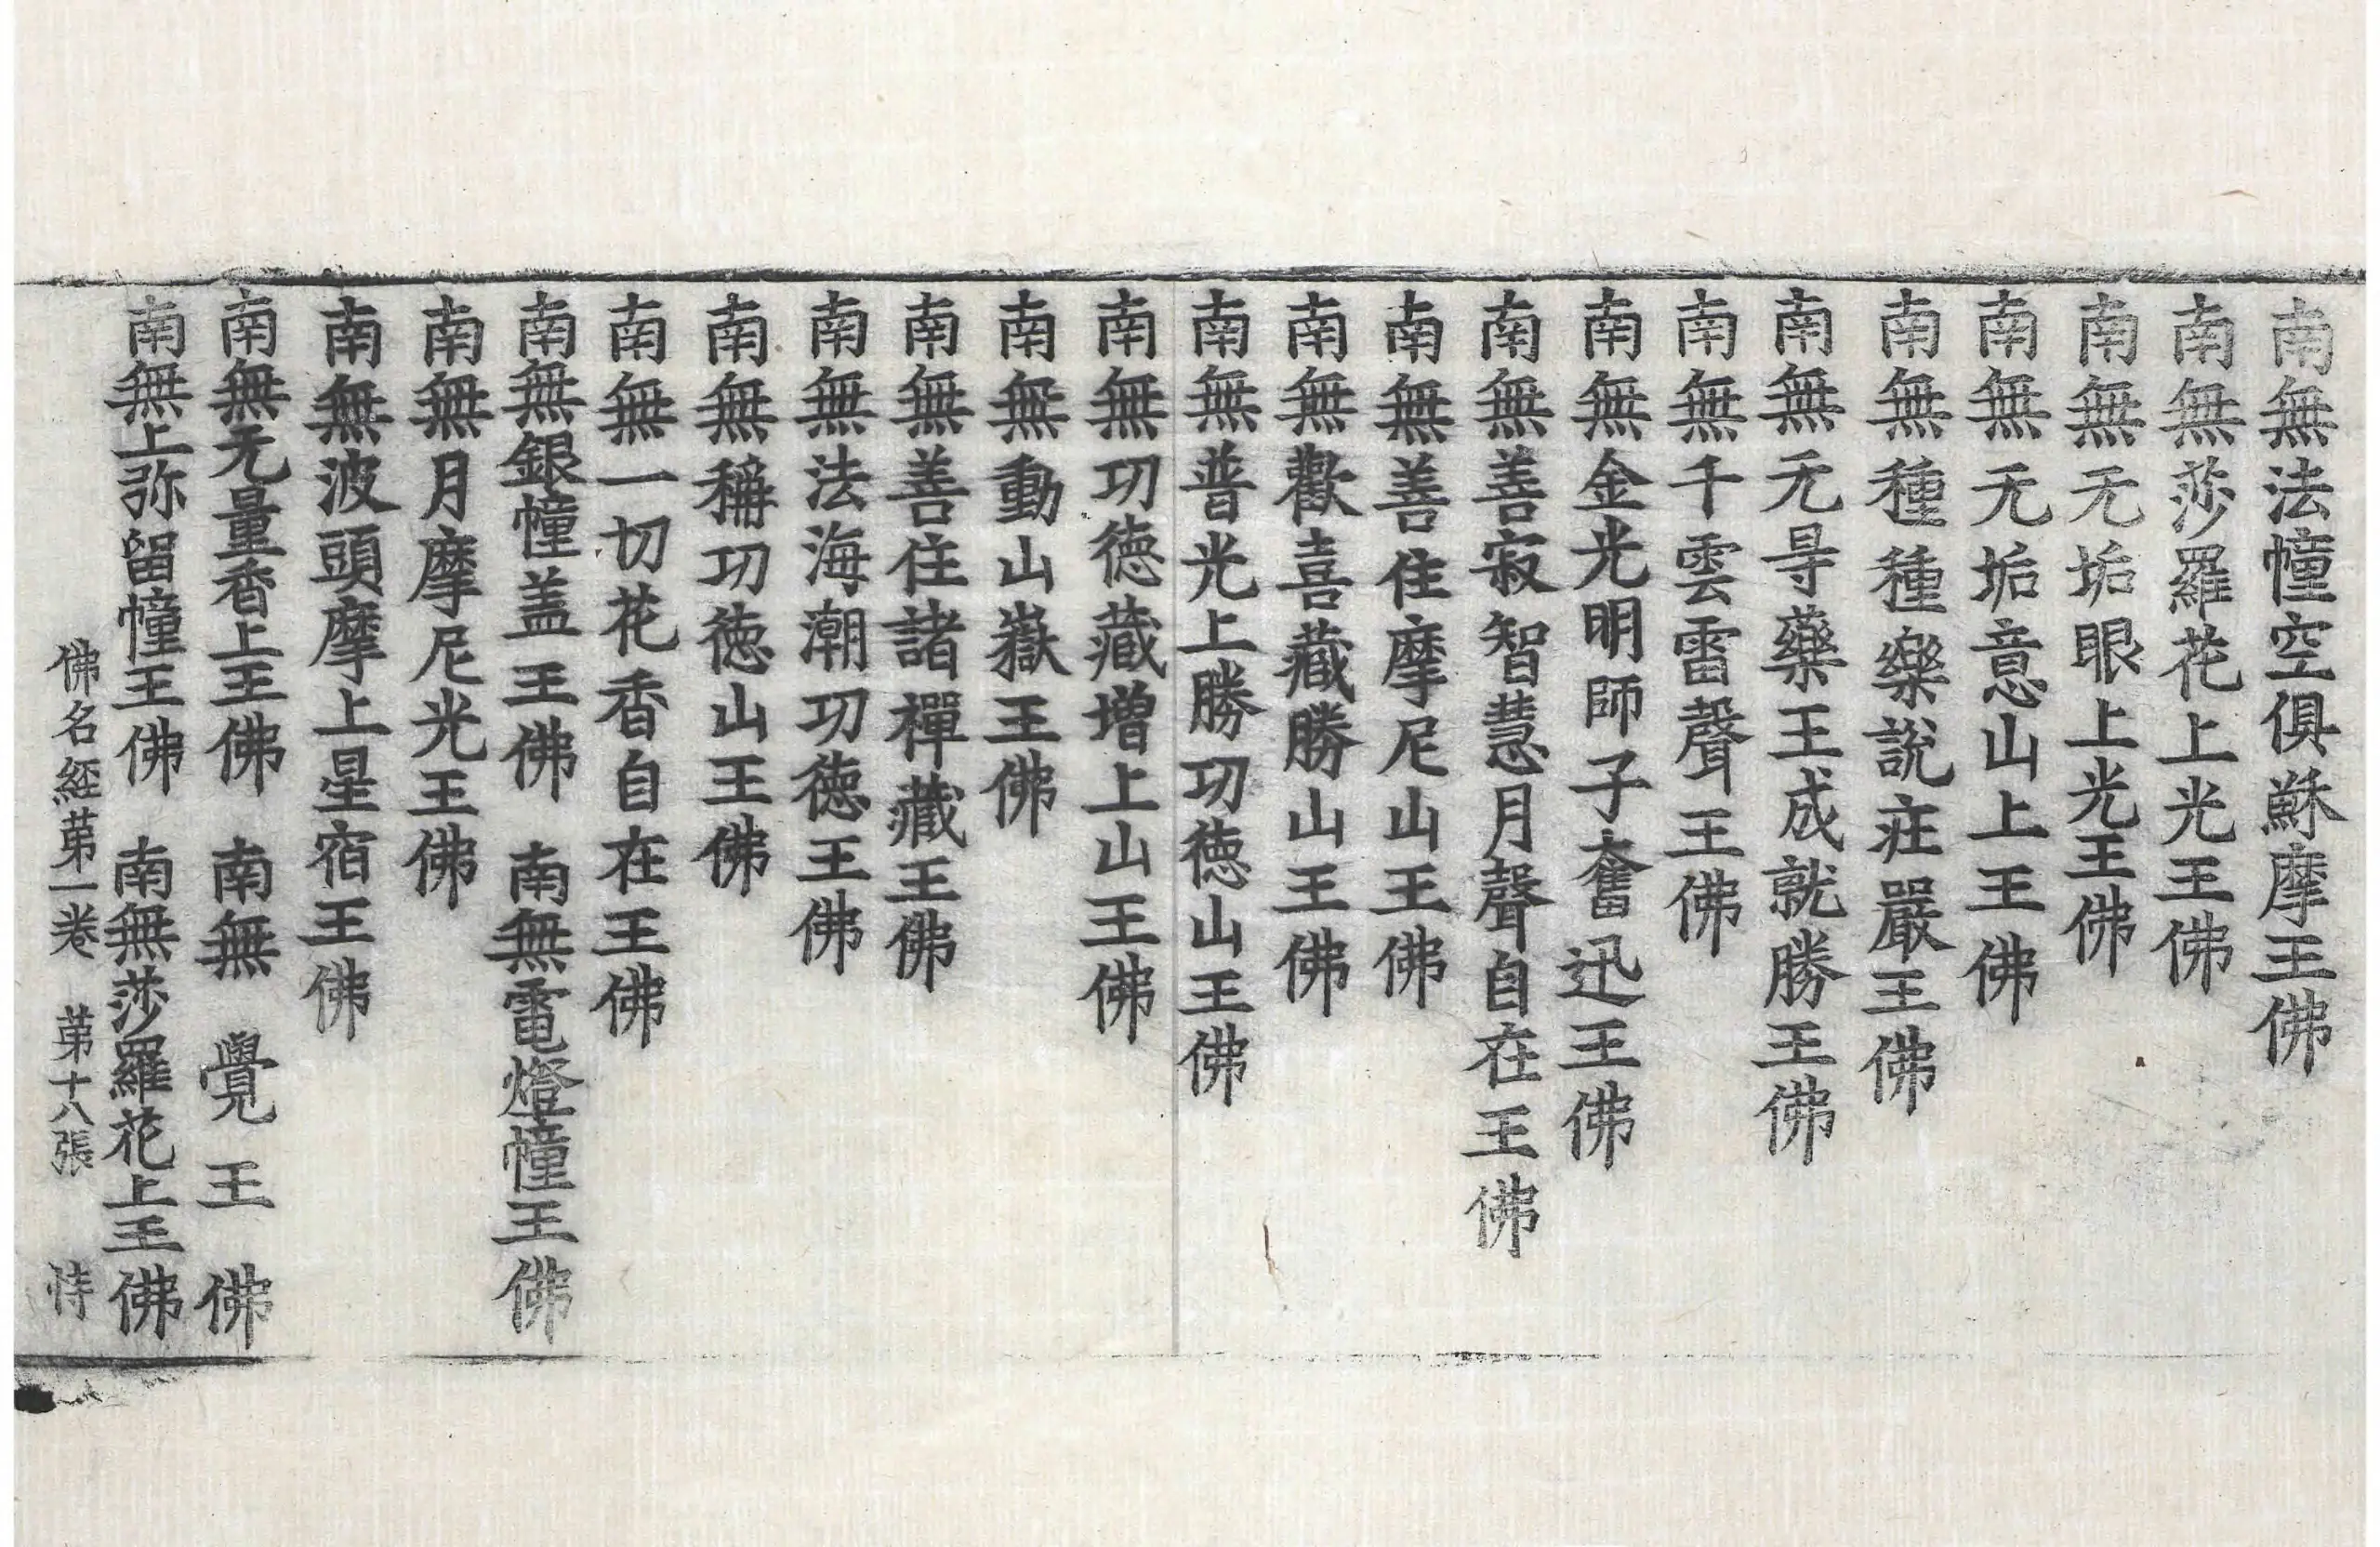 南無法幢空俱蘇摩王佛
南無莎羅花上光王佛
南無无垢眼上光王佛
南無无垢意山上王佛
南無種種樂說莊嚴王佛
南無无㝵藥王成就勝王佛
南無千雲雷聲王佛
南無金光明師子奮迅王佛
南無善寂智慧月聲自在王佛
南無善住摩尼山王佛
南無歡喜藏勝山王佛
南無普光上勝功徳山王佛
南無功徳藏增上山王佛
南無動山嶽王佛
南無善住諸禪藏王佛
南無法海潮功徳王佛
南無稱功徳山王佛
南無一切花香自在王佛
南無銀幢盖王佛 南無電燈幢王佛
南無月摩尼光王佛
南無波頭摩上星宿王佛
南無无量香上王佛 南無覺王佛
南無上弥留幢王佛 南無莎羅花上王佛
佛名経苐一卷 苐十八張 恃